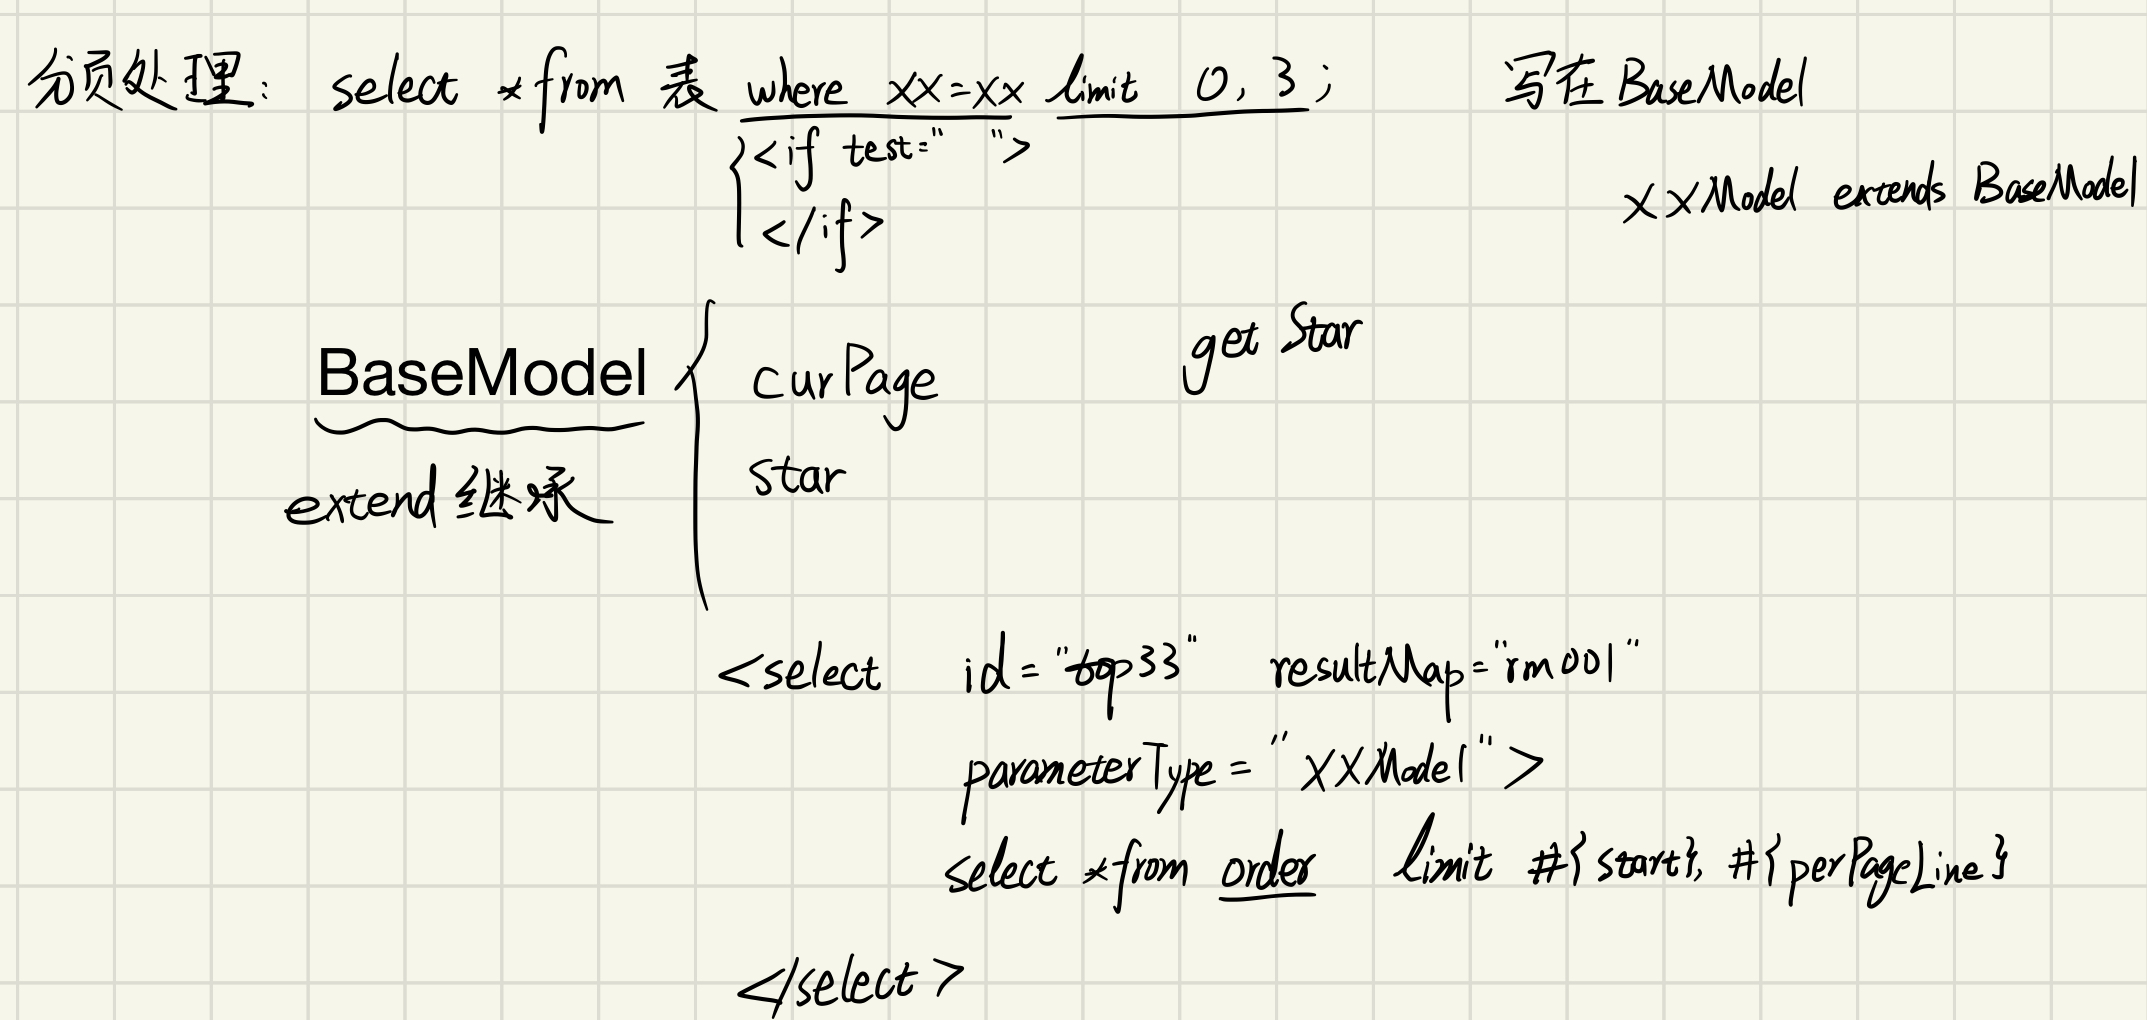 分页处理: select * from 表 where xx=xx limit 0, 3; 写在 BaseModel
{<if test=" ">
</if>
xxModel extends BaseModel
BaseModel {
extend 继承
curPage
star
get Star
<select id="top33" resultMap="rm001"
parameterType="XXModel">
select * from order limit #{start}, #{perPageLine}
</select>